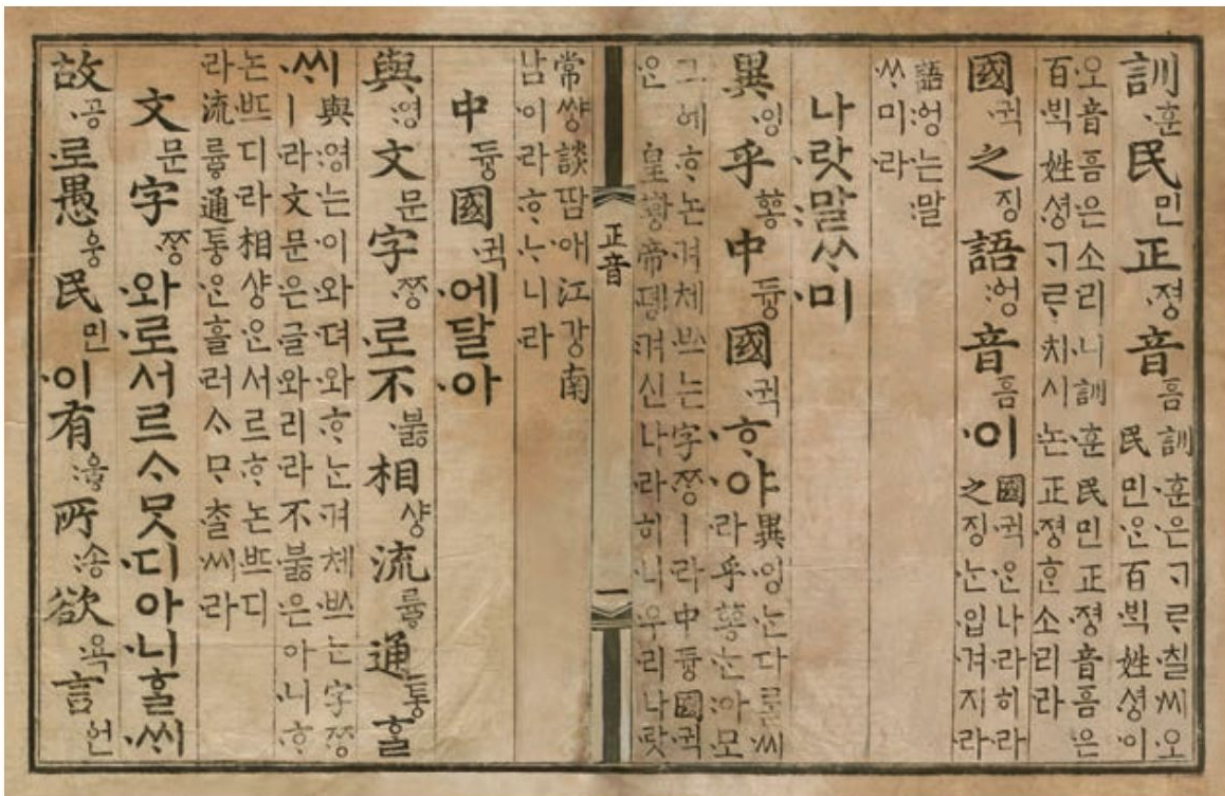 訓·훈民민正·졍音ᅙᅳᆷ
訓·훈·은ᄀᆞᄅᆞ·칠·씨오
民민·ᄋᆞᆫ百·ᄇᆡᆨ姓·셩·이
오音ᅙᅳᆷ·은소·리·니訓·훈民민正·졍音ᅙᅳᆷ·은
百·ᄇᆡᆨ姓·셩ᄀᆞᄅᆞ·치시·논正·졍ᄒᆞᆫ소·리·라
國·귁之징語:ᅌᅥᆼ音ᅙᅳᆷ·이
國·귁·ᄋᆞᆫ나·라히·라
之징·ᄂᆞᆫ·입·겨지·라
語:ᅌᅥᆼ·는:말
ᄊᆞ·미·라
나·랏:말ᄊᆞ·미
異·잉乎ᅘᅩᆼ中듀ᇰ國·귁·ᄒᆞ·야
異·잉·ᄂᆞᆫ다ᄅᆞᆯ·씨
·라乎ᅘᅩᆼ·는:아:모
그ᅌᅦ·ᄒᆞ논·겨체·ᄡᅳ는字·ᄍᆞᆼㅣ·라中듀ᇰ國·귁
·ᄋᆞᆫ皇ᅘᅪᇰ帝·뎽:겨신나·라히·니·우·리나·랏
常쌰ᇰ談땀·애江가ᇰ南
남·이·라·ᄒᆞ·ᄂᆞ·니·라
中듀ᇰ國·귁·에달·아
與:영文문字·ᄍᆞᆼ·로不·부ᇙ相샤ᇰ流류ᇢ通토ᇰᄒᆞᆯ
·ᄊᆡ
與:영·는·이·와·뎌·와·ᄒᆞ·ᄂᆞᆫ·겨체·ᄡᅳ는字·ᄍᆞᆼ
ㅣ·라文문·은·글·와리·라不·부ᇙ·은아·니·ᄒᆞ
논·ᄠᅳ디·라相샤ᇰ·ᄋᆞᆫ서르·ᄒᆞ논·ᄠᅳ디
라流류ᇢ通토ᇰ·ᄋᆞᆫ흘·러ᄉᆞᄆᆞ·ᄎᆞᆯ·씨라
文문字·ᄍᆞᆼ·와·로서르ᄉᆞᄆᆞᆺ·디아·니ᄒᆞᆯ·ᄊᆡ
故·공·로愚ᅌᅮᆼ民민·이有:우ᇢ所:송欲·욕言언
正音
一